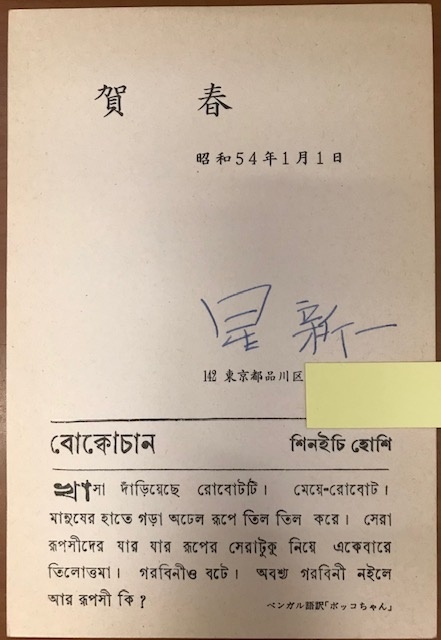 賀春
昭和54年1月1日
星新一
142 東京都品川区
বোক্কোচান শিনইচি হোশি
খাসা দাঁড়িয়েছে রোবোটটি। মেয়ে-রোবোট।
মানুষের হাতে গড়া অঢেল রূপে তিল তিল করে। সেরা
রূপসীদের যার যার রূপের সেরাটুকু নিয়ে একেবারে
তিলোত্তমা। গরবিনীও বটে। অবশ্য গরবিনী নইলে
আর রূপসী কি ?
ベンガル語訳「ボッコちゃん」